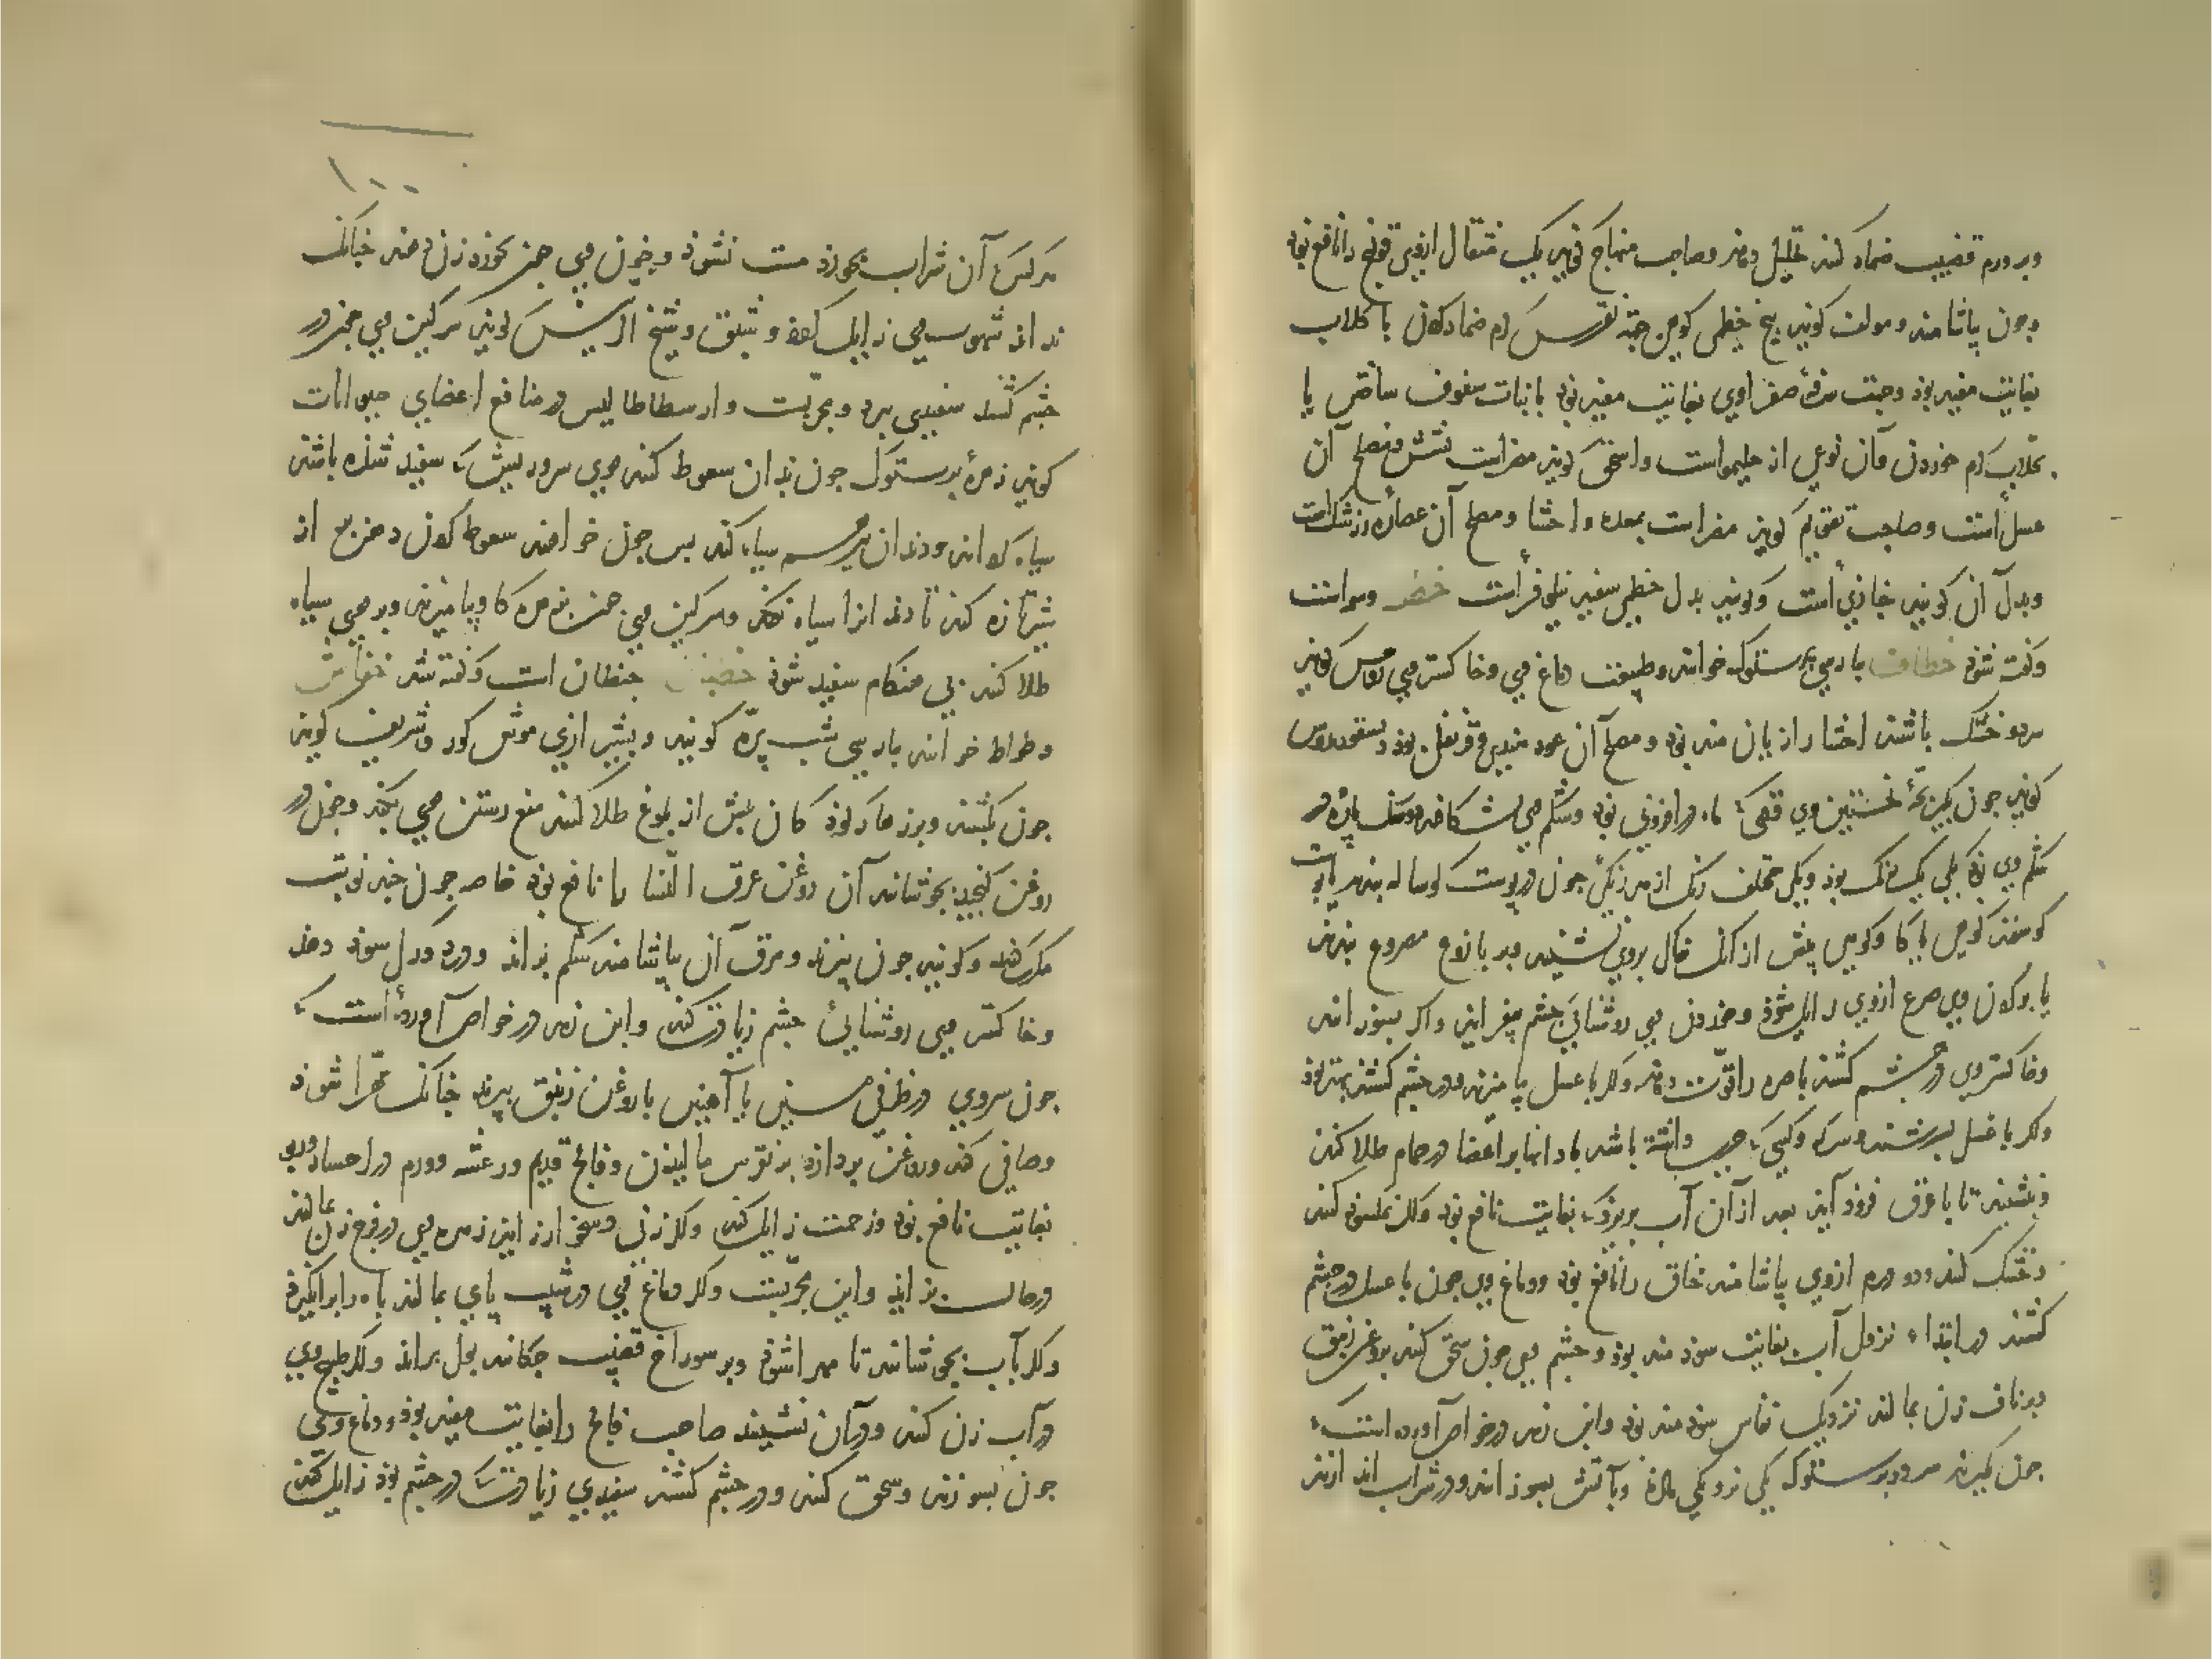 وبر ورم قضیب ضماد کنند تحلیل دهد و صاحب منهاج کوید یک مثقال ازوی قولنج را نافع بود
وجون بیاشامند ومولف کوید بیخ خطمی کوهی جهة نقرس کرم ضماد کردن با کلاب
بغایت مفید بود وجهت سرفهٔ صفراوی بغایت مفید بود با نبات سفوف ساختن یا
بجلاب کرم خوردن وآن نوعی از خلیمواست واسحق کوید مضراست بشش ومصلح آن
عسل است وصاحب تقویم کوید مضراست بمعده واحشا ومصلح آن عصاره زرشک است
وبدل آن کویند خبازی است وکویند بدل خطمی سفید نیلوفر است خطر وسمه است
وکفته شود خطاف بپارسی پرستوک خوانند وطبیعت دماغ وی وخاکستر وی کویند
سرد وخشک باشند احشا را زیان مند بود ومصلح آن عود هندی وقرنفل بود دیسقوریدوس
کوید جون بکیرند بچهٔ نخستین وی وقتی که ماه در افزونی بود وشکم وی بشکافند دوسنک پاره در
شکم وی بود یکی یک رنک بود ویکی مختلف رنک از هر رنکی جون در پوست کوساله بندند یا پوست
کوسفند کوهی یا کاو کوهی پیش از آنک خاک بروی نشیند وبر بازوی مصروع بندند
یا بر کردن وی صرع ازوی زایل شود وخوردن وی روشنایی جشم بیفزاید واکر بسوزانند
وخاکستر وی در چشم کشند باصره را قوت دهد واکر با عسل بیامیزند ودر چشم کشند بهتر بود
واکر با عسل بسرشند وسرکه وکسی که جرب داشته باشد بامدادانها بر اعضا در حمام طلا کنند
وبنشیند تا با عرق فرود آید بعد از آن آب بریزد که بغایت نافع بود واکر نمکسود کنند
وخشک کنند ودو درم ازوی بیاشامند خناق را نافع بود ودماغ وی جون با عسل در چشم
کشند در ابتداء نزول آب بغایت سودمند بود وچشم وی جون سحق کنند بروغن زنبق
وبر ناف زن بمالند نزدیک نفاس سودمند بود وابن زهر در خواص آورده است که
جون بکیرند سر دو پرستوک یکی نر ویکی ماده وبآتش بسوزانند ودر شراب اندازند
۱۰۰
هر کس که آن شراب بخورد مست نشود وخون وی جون بخورد زن دهند جنانک
نداند شهوت وی زایل کند وشبق وشیخ الرئیس کوید سرکین وی جون در
چشم کشند سفیدی ببرد ومجربست وارسطاطالیس در منافع اعضای حیوانات
کوید زهرهٔ پرستوک جون بدان سعوط کنند موی سر وریش که سفید شده باشد
سیاه کرداند ودندان نیز هم سیاه کند پس جون خواهند سعوط کردن دهن پر از
شیر تازه کنند تا دندانرا سیاه نکند وسرکین وی جون بزهره کاو بیامیزند وبر موی سیاه
طلا کنند بی هنکام سفید شود خطبان حنظل است وکفته شد خفاش
وطواط خوانند بپارسی شب پره کویند وبشیرازی موش کور وشریف کوید
جون بکشند وبر زهار کودکان پیش از بلوغ طلا کنند منع رستن موی بکند وجون در
روغن کنجد بجوشانند آن روغن عرق النسا را نافع بود خاصه جون چند نوبت
مکرر کنند وکویند جون بپزند ومرق آن بیاشامند شکم براند ودرد ورک را سود دهد
وخاکستر وی روشنایی چشم زیادت کند وابن زهر در خواص آورده است که
جون سر وی در ظرفی مسین یا آهنین با روغن زنبق بپزند جنانک مهرا شود
وصافی کنند وروغن بردارند بر نقرس مالیدن وفالج قدیم ورعشه وورم در اجساد وربو
بغایت نافع بود وزحمت زایل کند واکر زنی دشخوار زاید زهره وی در فرج زن بمالند
در حال بزاید واین مجربست واکر دماغ وی در شیب پای بمالند باه را برانکیزد
واکر بآب بجوشانند تا مهرا شود وبر سوراخ قضیب جکانند بول براند واکر طبیخ وی
در آب زن کنند ودر آن نشیند صاحب فالج را بغایت مفید بود ودماغ وی
جون بسوزند وسحق کنند ودر چشم کشند سفیدی زیادت که در چشم بود زایل کند